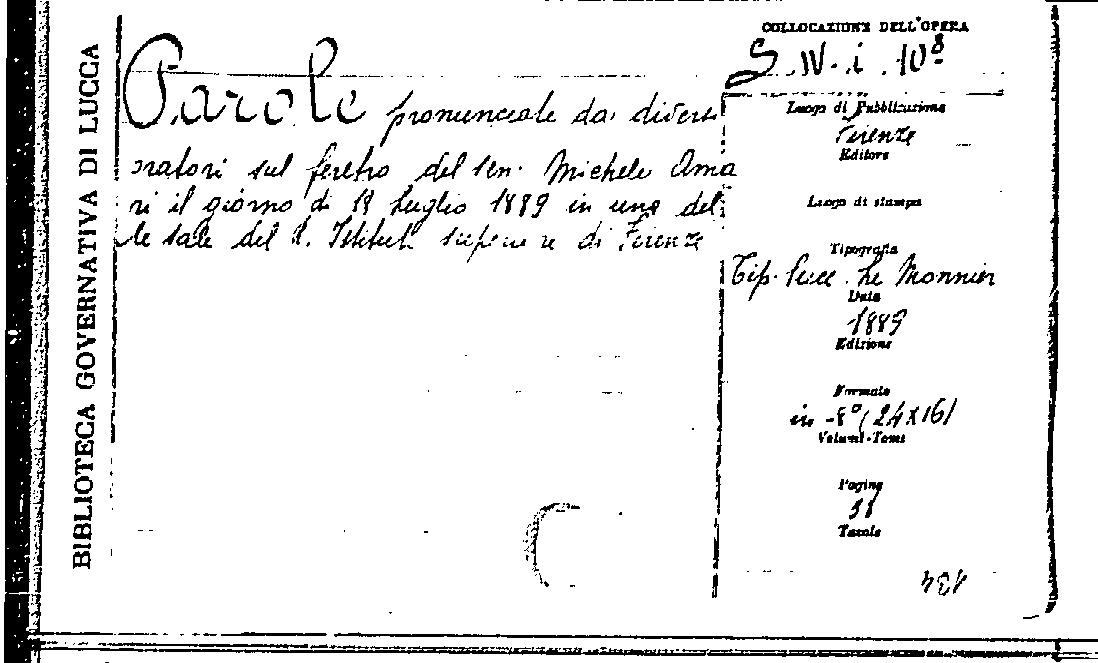 BIBLIOTECA GOVERNATIVA DI LUCCA
Parole pronunciate da diversi
oratori sul feretro del sen. Michele Ama
ri il giorno di 18 Luglio 1889 in una del
le sale del R. Istituto superiore di Firenze
COLLOCAZIONE DELL'OPERA
S. IV. i. 108
Luogo di Pubblicazione
Firenze
Editore
Luogo di stampa
Tipografia
Tip. Succ. Le Monnier
Data
1889
Edizione
Formato
in -8° (24x16)
Volumi-Tomi
Pagine
Tavole
434